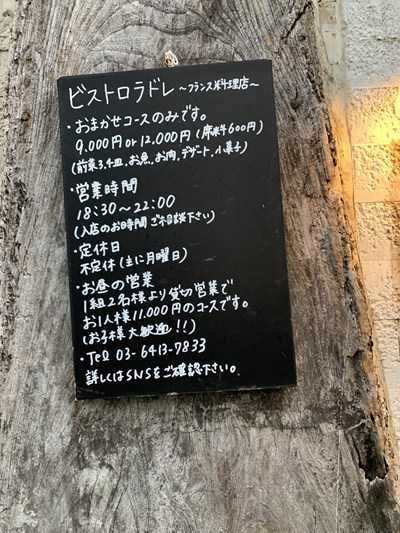 ビストロラドレ ～フランス料理店～
・おまかせコースのみです。
9.000円 or 12.000円 (席料600円)
(前菜3,4皿、お魚、お肉、デザート、小菓子)
・営業時間
18:30～22:00
(入店のお時間ご相談下さい)
・定休日
不定休(主に月曜日)
・お昼の営業
1組2名様より貸切営業で
お1人様11.000円のコースです。
(お子様大歓迎!!)
・Tel 03-6413-7833
詳しくはSNSをご確認下さい。